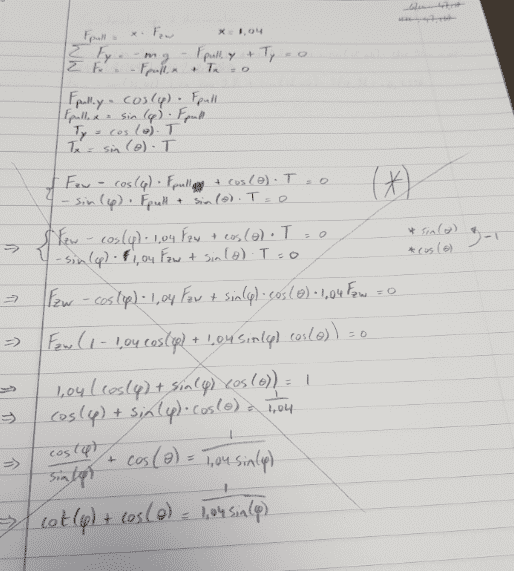 F_pull = x · F_zw    x = 1,04
Σ F_y = -m g - F_pull,y + T_y = 0
Σ F_x = -F_pull,x + T_x = 0
F_pull,y = cos(φ) · F_pull
F_pull,x = sin(φ) · F_pull
T_y = cos(θ) · T
T_x = sin(θ) · T
{ F_zw - cos(φ) · F_pull + cos(θ) · T = 0    (*)
- sin(φ) · F_pull + sin(θ) · T = 0
⇒ { F_zw - cos(φ) · 1,04 F_zw + cos(θ) · T = 0    * sin(θ)
-sin(φ) · 1,04 F_zw + sin(θ) · T = 0    * cos(θ) } -1
⇒ F_zw - cos(φ) · 1,04 F_zw + sin(φ) · cos(θ) · 1,04 F_zw = 0
⇒ F_zw (1 - 1,04 cos(φ) + 1,04 sin(φ) cos(θ)) = 0
⇒ 1,04 (cos(φ) + sin(φ) cos(θ)) = 1
⇒ cos(φ) + sin(φ) · cos(θ) = 1/1,04
⇒ cos(φ)/sin(φ) + cos(θ) = 1/1,04 sin(φ)
⇒ cot(φ) + cos(θ) = 1/1,04 sin(φ)